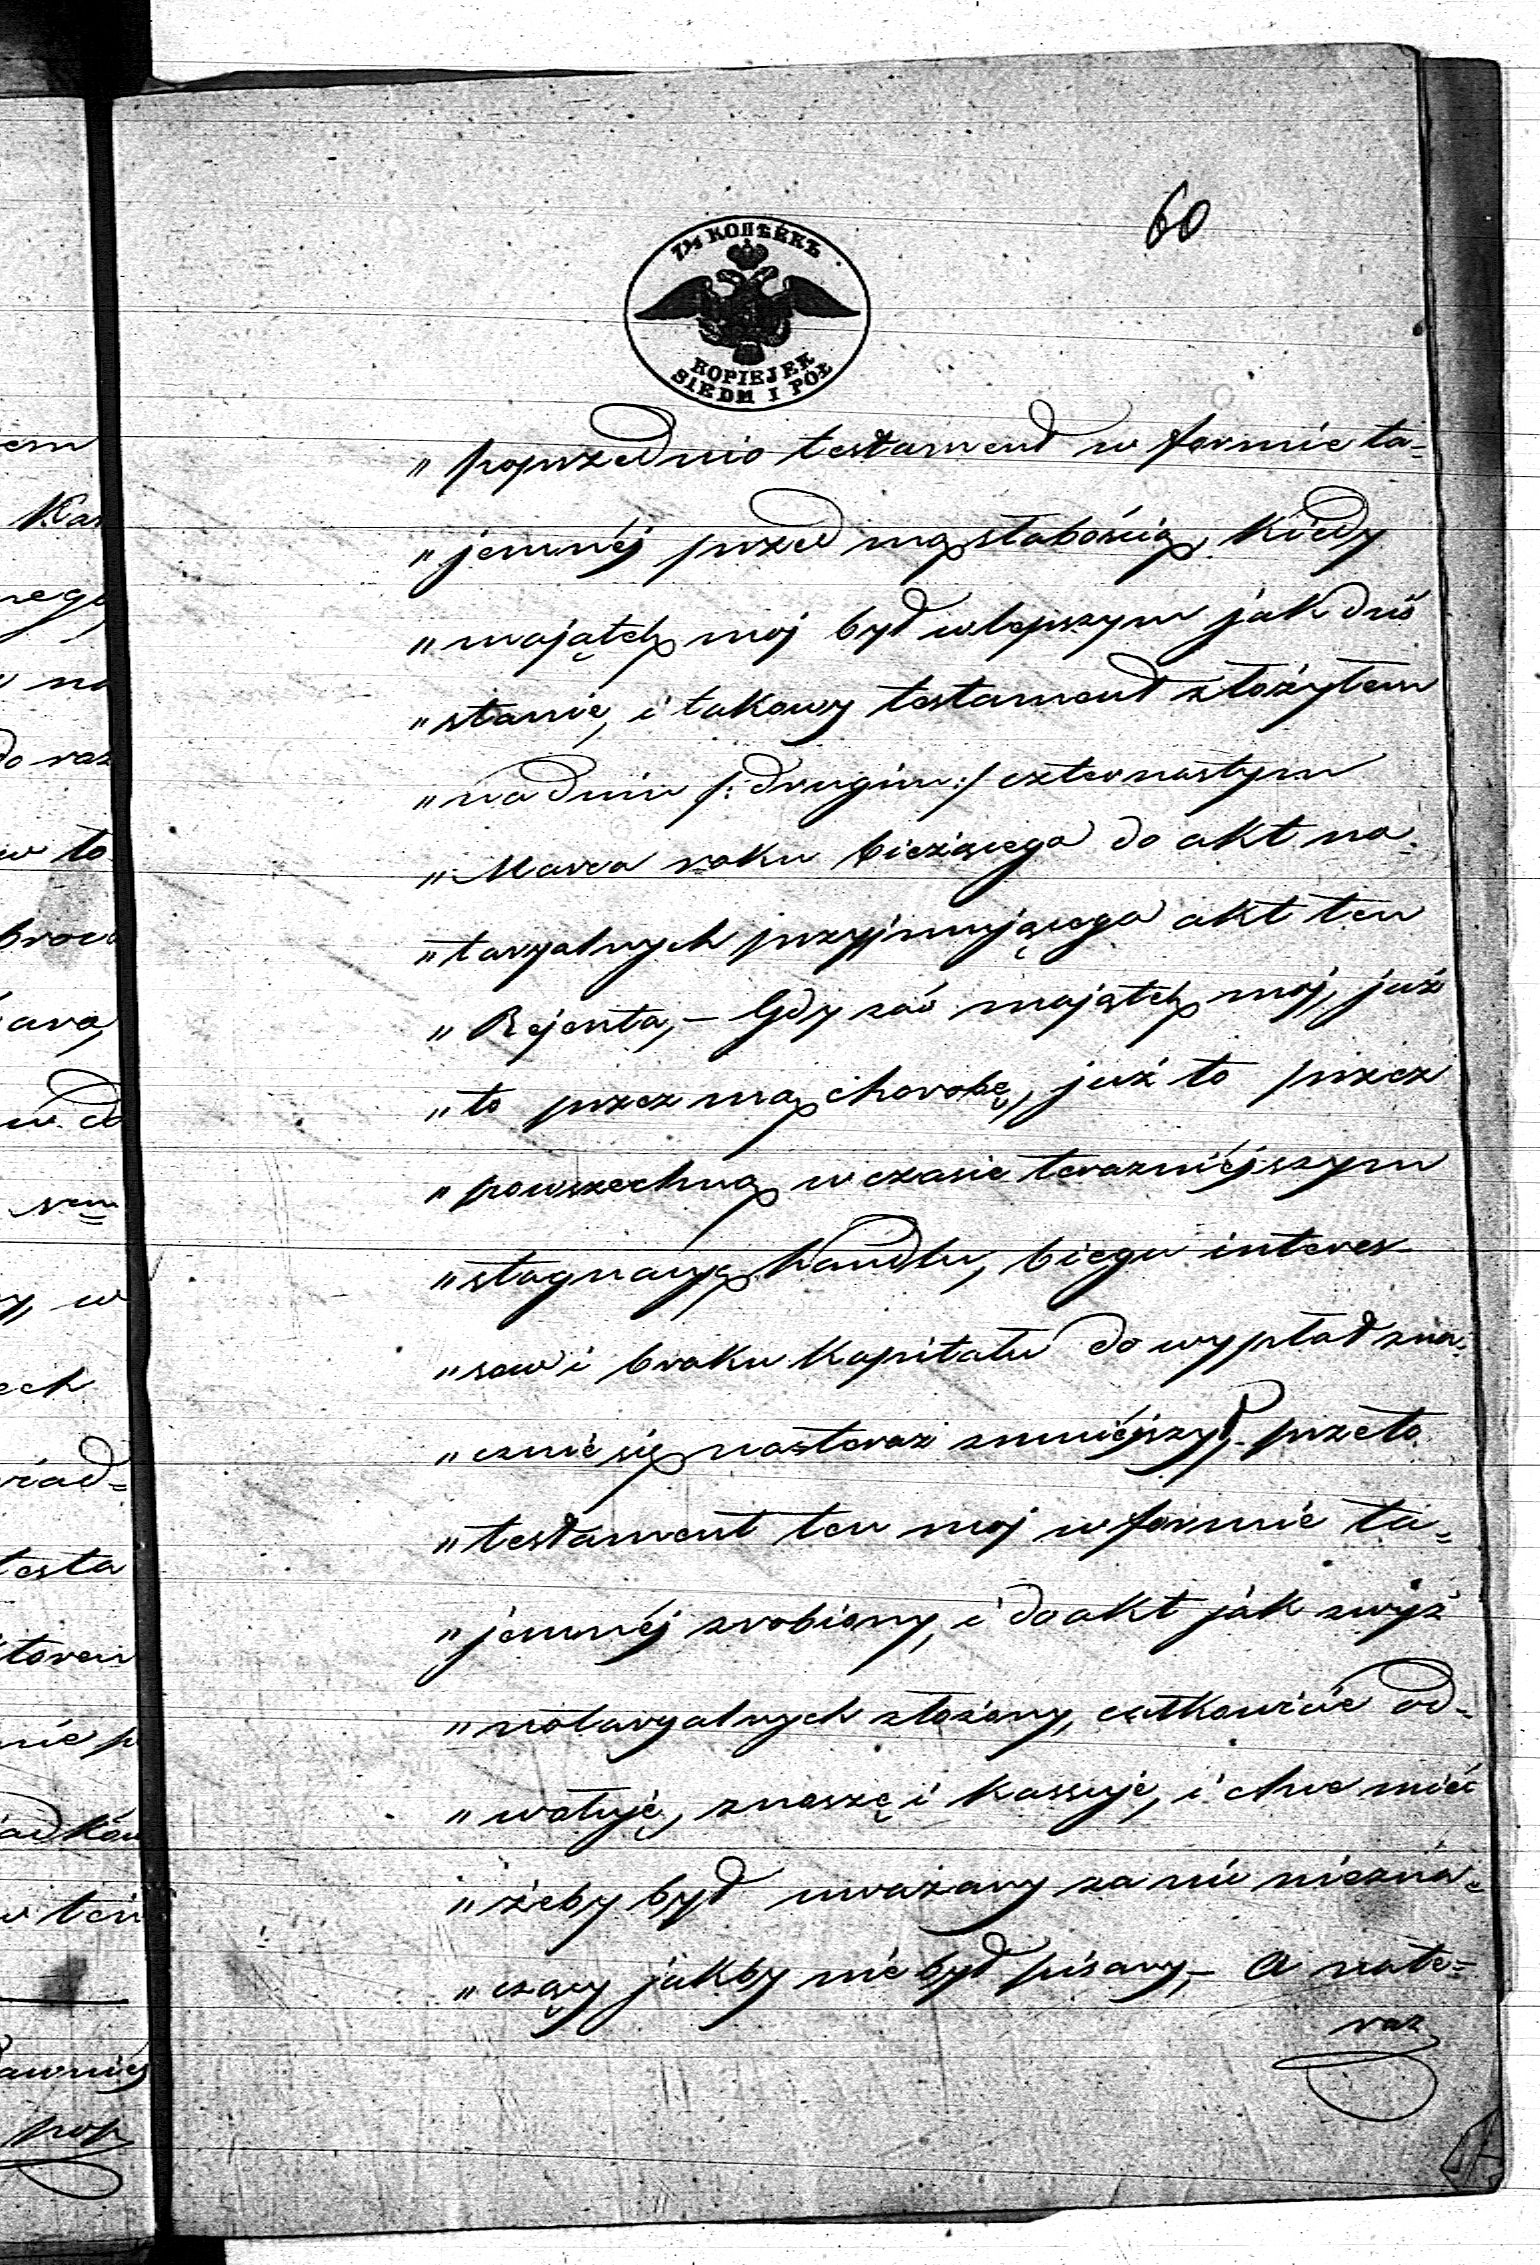 60
7½ КОПѢЕКЪ
KOPIEJEK
SIEDM I PÓŁ
„ poprzednio testament w formie ta-
„ jemnéj przed mą słabością, kiedy
„ majątek moj był w lepszym jak dziś
„ stanie, i takowy testament złożyłem
„ na dniu /: drugim :/ czternastym
„ Marca roku bieżącego do akt no-
„ taryalnych przyjmującego akt ten
„ Rejenta, – Gdy zaś majątek mój, już
„ to przez mą chorobę, już to przez
„ powszechną w czasie teraźniejszym
„ stagnacyę handlu, biegu interes-
„ sow i braku kapitału do wypłat zna-
„ cznie się nasteraz zmniéjszył, przeto
„ testament ten moj w formie ta-
„ jemnéj zrobiony, i do akt jak wyż
„ notaryalnych złożony, całkowicie od-
„ wołuję, znoszę i kassuję, i chce mieć
„ żeby był uważany za nic niezna-
„ czący jakby nie był pisany, – A nate-
raz
em
nego
do raz
w to
w do
ech
wiad=
testa
nie p
w ten
pop